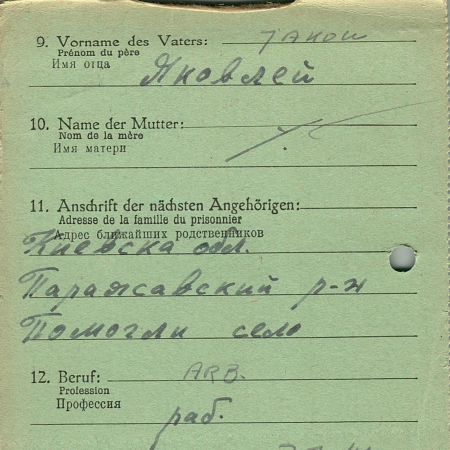 9. Vorname des Vaters: JAKOW
Prénom du père
Имя отца
Яковлей
10. Name der Mutter:
Nom de la mère
Имя матери
11. Anschrift der nächsten Angehörigen:
Adresse de la famille du prisonnier
Адрес ближайших родственников
Киевска обл.
Паражсавский р-н
Помогли село
12. Beruf: ARB.
Profession
Профессия
раб.